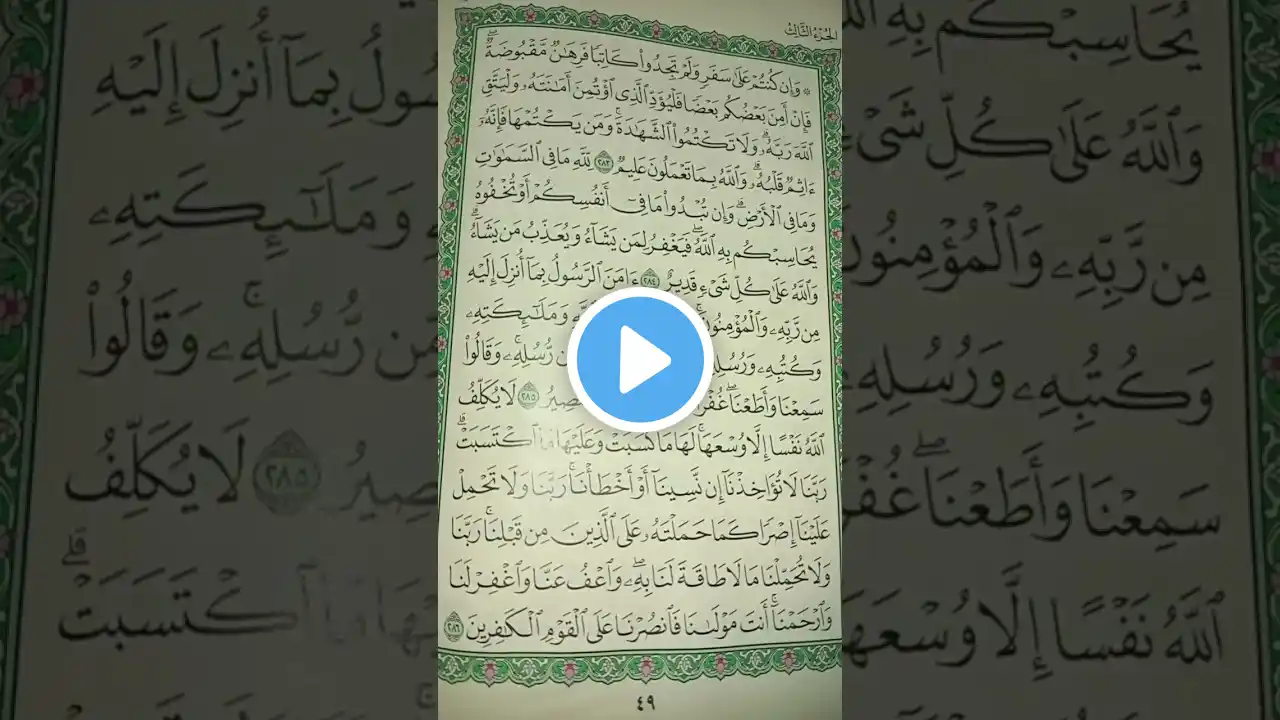 الجزء الثالث
۞ وَإِن كُنتُمْ عَلَىٰ سَفَرٍ وَلَمْ تَجِدُوا۟ كَاتِبًا فَرِهَـٰنٌ مَّقْبُوضَةٌ ۖ
فَإِنْ أَمِنَ بَعْضُكُم بَعْضًا فَلْيُؤَدِّ ٱلَّذِى ٱؤْتُمِنَ أَمَـٰنَتَهُۥ وَلْيَتَّقِ
ٱللَّهَ رَبَّهُۥ ۗ وَلَا تَكْتُمُوا۟ ٱلشَّهَـٰدَةَ ۚ وَمَن يَكْتُمْهَا فَإِنَّهُۥٓ
ءَاثِمٌ قَلْبُهُۥ ۗ وَٱللَّهُ بِمَا تَعْمَلُونَ عَلِيمٌ ٢٨٣ لِّلَّهِ مَا فِى ٱلسَّمَـٰوَٰتِ
وَمَا فِى ٱلْأَرْضِ ۗ وَإِن تُبْدُوا۟ مَا فِىٓ أَنفُسِكُمْ أَوْ تُخْفُوهُ
يُحَاسِبْكُم بِهِ ٱللَّهُ ۖ فَيَغْفِرُ لِمَن يَشَآءُ وَيُعَذِّبُ مَن يَشَآءُ ۗ
وَٱللَّهُ عَلَىٰ كُلِّ شَىْءٍ قَدِيرٌ ٢٨٤ ءَامَنَ ٱلرَّسُولُ بِمَآ أُنزِلَ إِلَيْهِ
مِن رَّبِّهِۦ وَٱلْمُؤْمِنُونَ ۚ وَمَلَـٰٓئِكَتِهِۦ
وَكُتُبِهِۦ وَرُسُلِهِۦ مِّن رُّسُلِهِۦ ۚ وَقَالُوا۟
سَمِعْنَا وَأَطَعْنَا ۖ ٢٨٥ لَا يُكَلِّفُ
ٱللَّهُ نَفْسًا إِلَّا وُسْعَهَا ۚ لَهَا مَا كَسَبَتْ وَعَلَيْهَا مَا ٱكْتَسَبَتْ ۗ
رَبَّنَا لَا تُؤَاخِذْنَآ إِن نَّسِينَآ أَوْ أَخْطَأْنَا ۚ رَبَّنَا وَلَا تَحْمِلْ
عَلَيْنَآ إِصْرًا كَمَا حَمَلْتَهُۥ عَلَى ٱلَّذِينَ مِن قَبْلِنَا ۚ رَبَّنَا
وَلَا تُحَمِّلْنَا مَا لَا طَاقَةَ لَنَا بِهِۦ ۖ وَٱعْفُ عَنَّا وَٱغْفِرْ لَنَا
وَٱرْحَمْنَآ ۚ أَنتَ مَوْلَىٰنَا فَٱنصُرْنَا عَلَى ٱلْقَوْمِ ٱلْكَـٰفِرِينَ ٢٨٦
٤٩